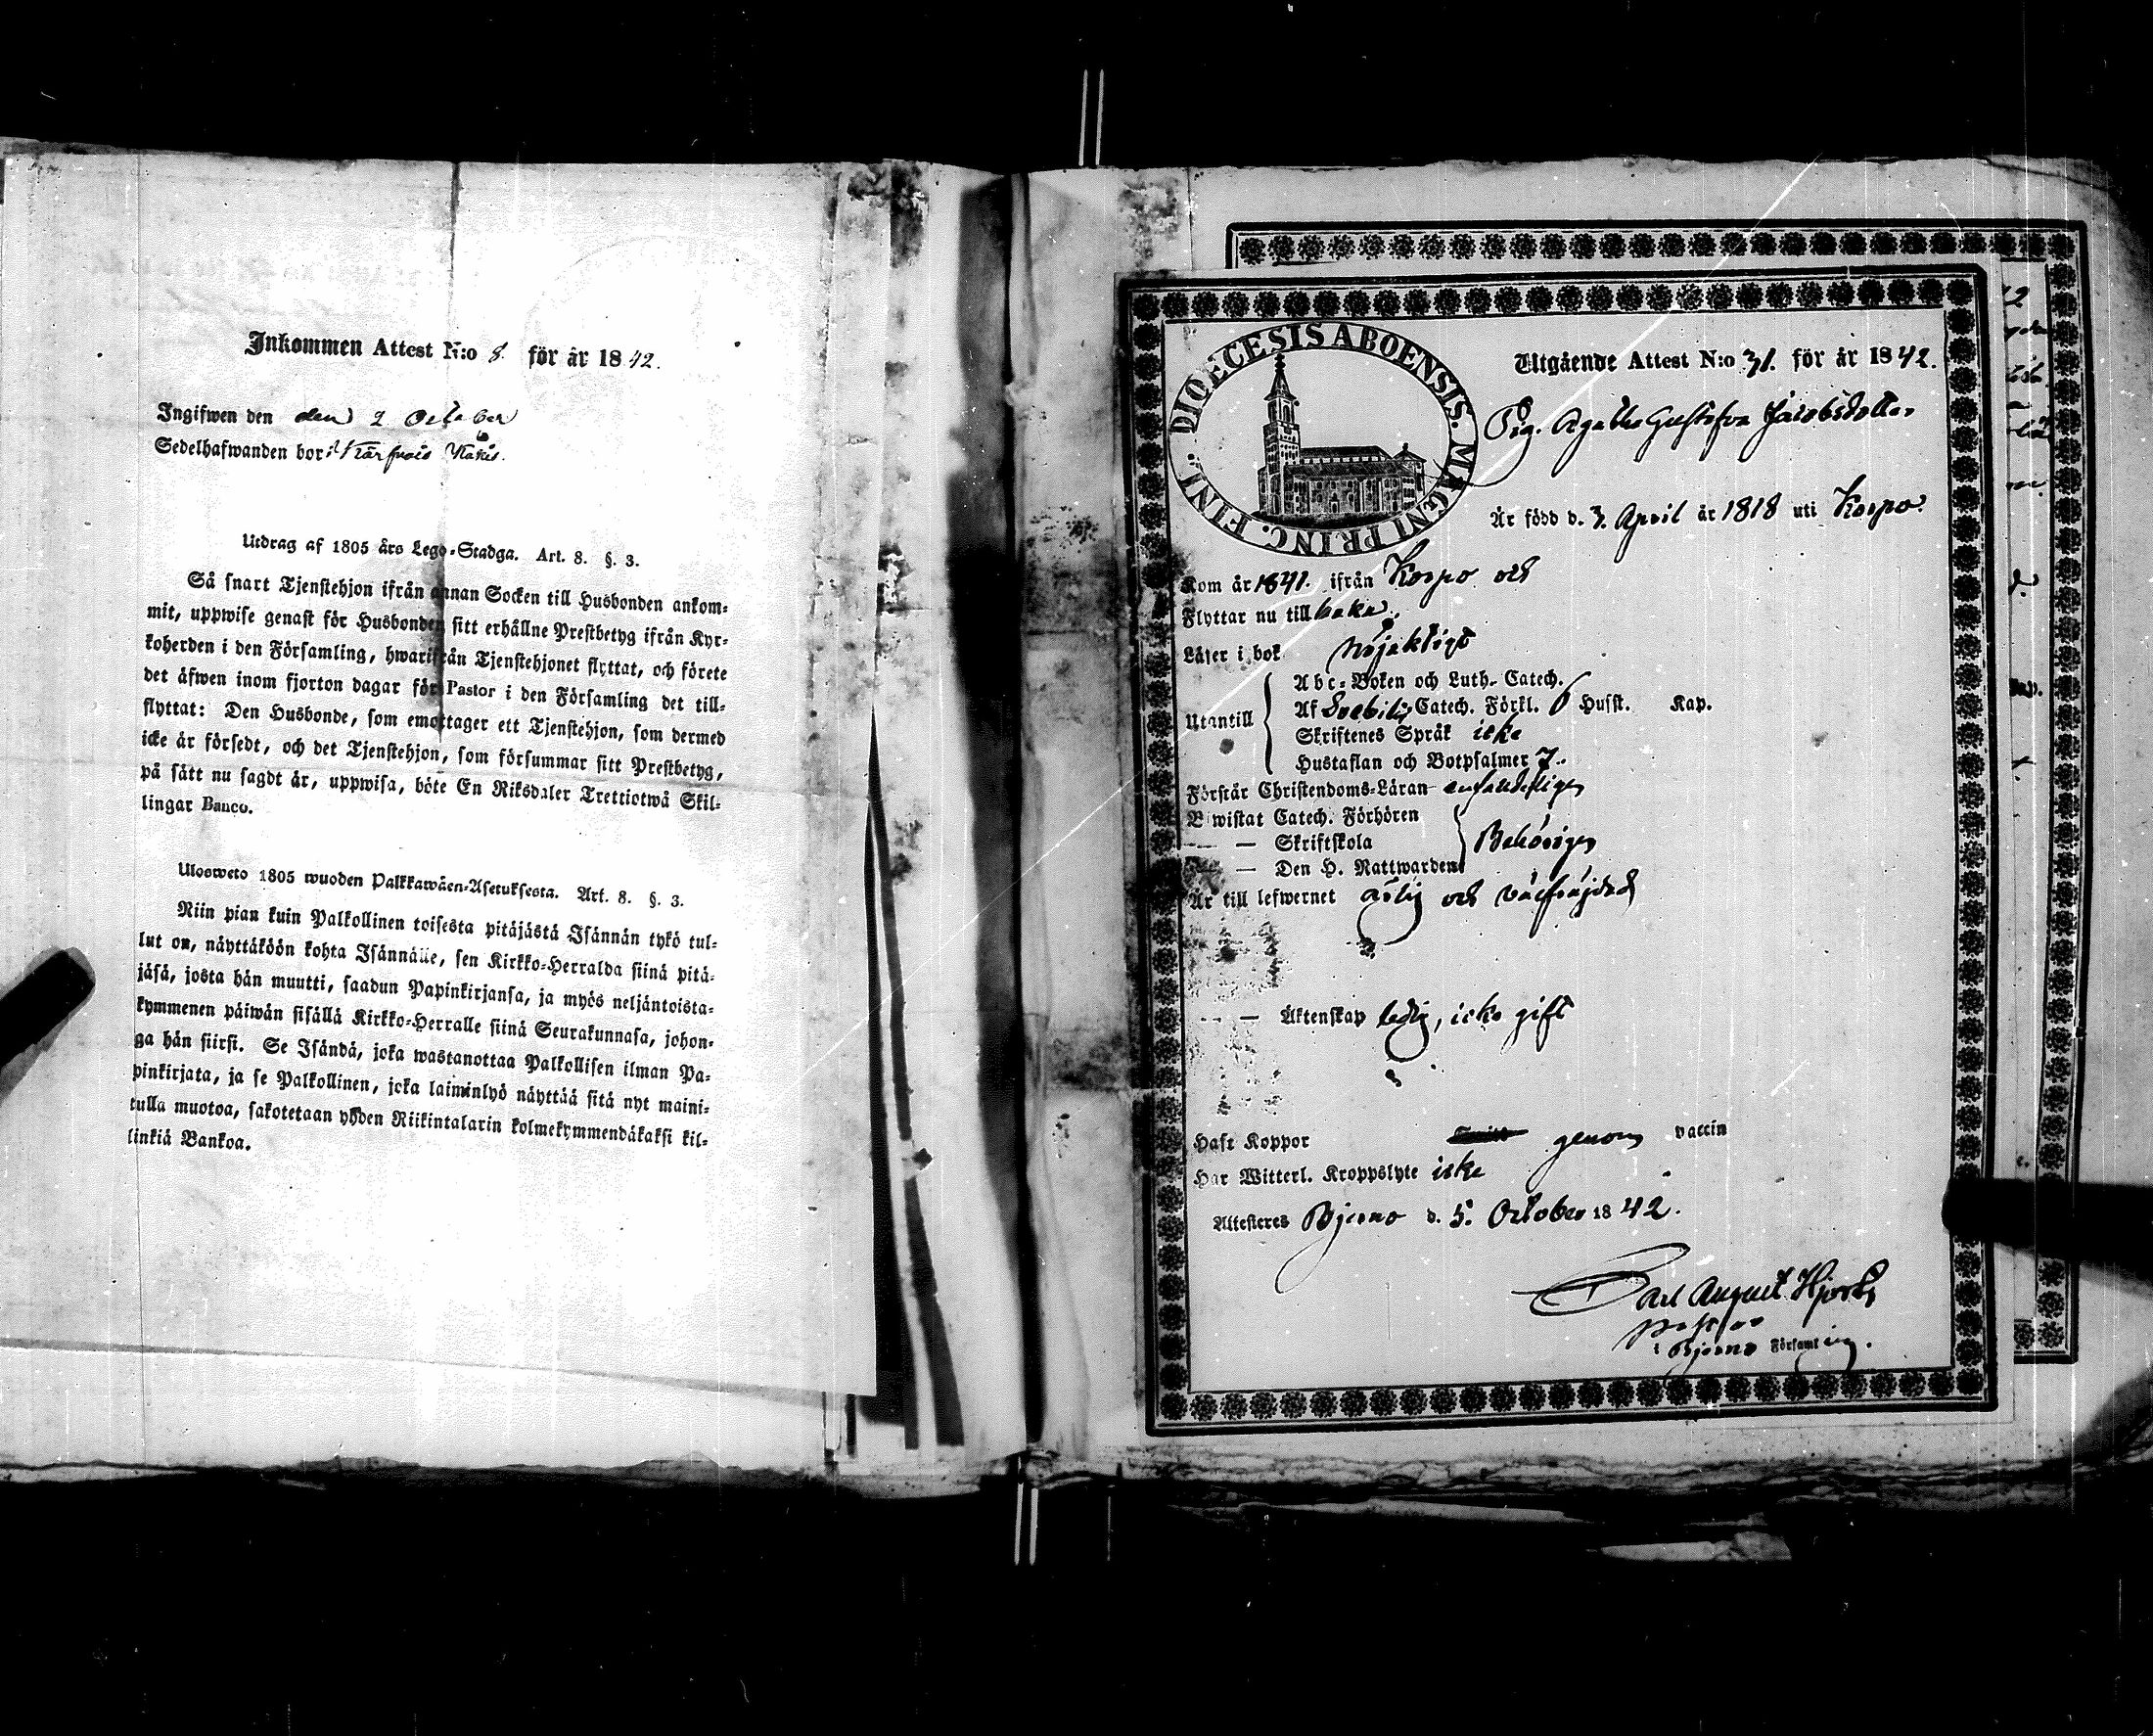 Inkommen Attest N:o 8. för år 1842.
Ingifwen den den 2 October
Sedelhafwanden bor i
Utdrag af 1805 års Lego-Stadga. Art. 8. §. 3.
Så snart Tjenstehjon ifrån annan Socken till Husbonden ankom-
mit, uppwise genast för Husbonden sitt erhållne Prestbetyg ifrån Kyr-
koherden i den Församling, hwarifrån Tjenstehjonet flyttat, och förete
det äfwen inom fjorton dagar för Pastor i den Församling det till-
flyttat: Den Husbonde, som emottager ett Tjenstehjon, som dermed
icke är försedt, och det Tjenstehjon, som försummar sitt Prestbetyg,
på sätt nu sagdt är, uppwisa, böte En Riksdaler Trettiotwå Skil-
lingar Banco.
Ulosweto 1805 wuoden Palkkawäen-Asetuksesta. Art. 8. §. 3.
Niin pian kuin Palkollinen toisesta pitäjästä Isännän tykö tul-
lut on, näyttäköön kohta Isännälle, sen Kirkko-Herralda siinä pitä-
jäsä, josta hän muutti, saadun Papinkirjansa, ja myös neljäntoista-
kymmenen päiwän sisällä Kirkko-Herralle siinä Seurakunnasa, johon-
ga hän siirsi. Se Isändä, joka wastanottaa Palkollisen ilman Pa-
pinkirjata, ja se Palkollinen, joka laiminlyö näyttää sitä nyt maini-
tulla muotoa, sakotetaan yhden Riikintalarin kolmekymmendäkaksi kil-
linkiä Bankoa.
DIOECESIS ABOENSIS. MAGNI PRINC. FINL.
Utgående Attest N:o 31. för år 1842.
Pig. Agatha Gustafva Jacobsdotter
Är född d. 3. April år 1818 uti Korpo
Kom år 1841. ifrån Korpo och
Flyttar nu tillbaka.
Läser i bok nöjaktigt
Utantill
Abc-Boken och Luth. Catech.
Af Svebilii Catech. Förkl. 6 Husst. Kap.
Skriftenes Språk icke
Hustaflan och Botpsalmer 7.
Förstår Christendoms-Läran enfaldeligen
Biwistat Catech. Förhören
— — Skriftskola Behörigen
— — Den H. Nattwarden
Är till lefwernet ärlig och välfräjdad
— — Äktenskap ledig, icke gift
Haft Koppor genom vaccin
Har Witterl. Kroppslyte icke
Attesteres Bjerno d. 5. October 1842.
Carl August Hjorth
Pastor
i Bjerno Församling.